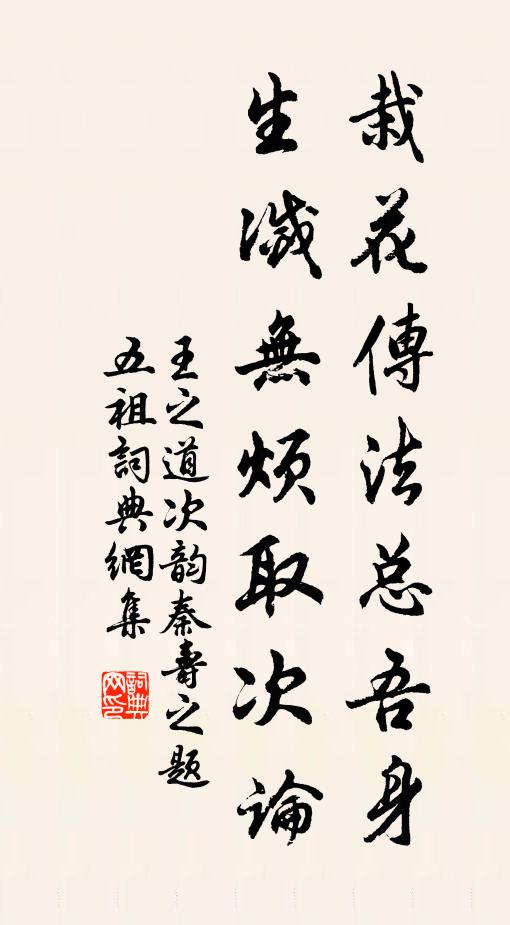 栽花傳法总吾身
生滅無煩取次論
王之道次韵秦壽之題
五祖詞典網集
詞典網印